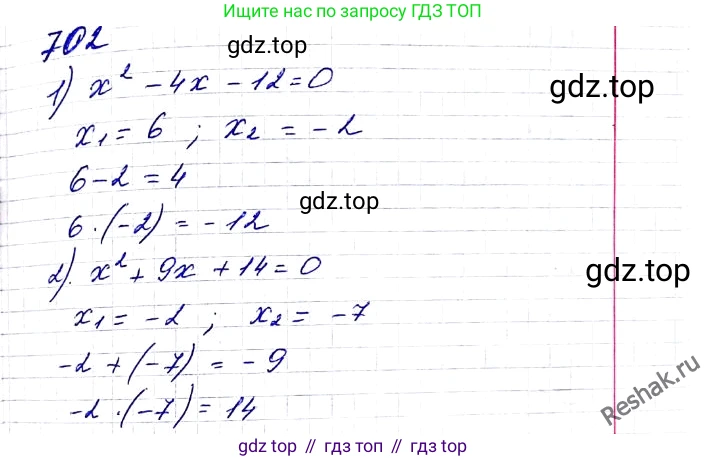 Ищите нас по запросу ГДЗ ТОП
702
gdz.top
1) x² - 4x - 12 = 0
gdz.top
x₁ = 6 ; x₂ = - 2
6 - 2 = 4
gdz.top
6 · (-2) = - 12
2). x² + 9x + 14 = 0
gdz.top
x₁ = - 2 ; x₂ = - 7
-2 + (-7) = - 9
-2 · (-7) = 14
Reshak.ru
gdz.top // гдз топ // gdz.top